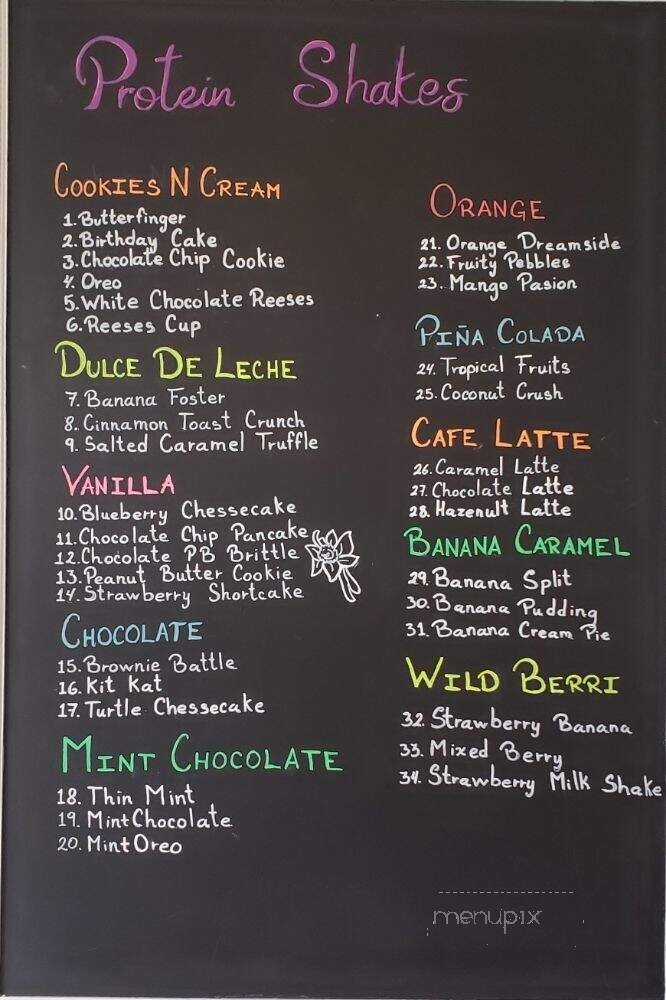 Protein Shakes
COOKIES N CREAM
1. Butterfinger
2. Birthday Cake
3. Chocolate Chip Cookie
4. Oreo
5. White Chocolate Reeses
6. Reeses Cup
DULCE DE LECHE
7. Banana Foster
8. Cinnamon Toast Crunch
9. Salted Caramel Truffle
VANILLA
10. Blueberry Chessecake
11. Chocolate Chip Pancake
12. Chocolate PB Brittle
13. Peanut Butter Cookie
14. Strawberry Shortcake
CHOCOLATE
15. Brownie Battle
16. Kit Kat
17. Turtle Chessecake
MINT CHOCOLATE
18. Thin Mint
19. Mint Chocolate
20. Mint Oreo
ORANGE
21. Orange Dreamside
22. Fruity Pebbles
23. Mango Pasion
PIÑA COLADA
24. Tropical Fruits
25. Coconut Crush
CAFE LATTE
26. Caramel Latte
27. Chocolate Latte
28. Hazenult Latte
BANANA CARAMEL
29. Banana Split
30. Banana Pudding
31. Banana Cream Pie
WILD BERRI
32. Strawberry Banana
33. Mixed Berry
34. Strawberry Milk Shake
menupix